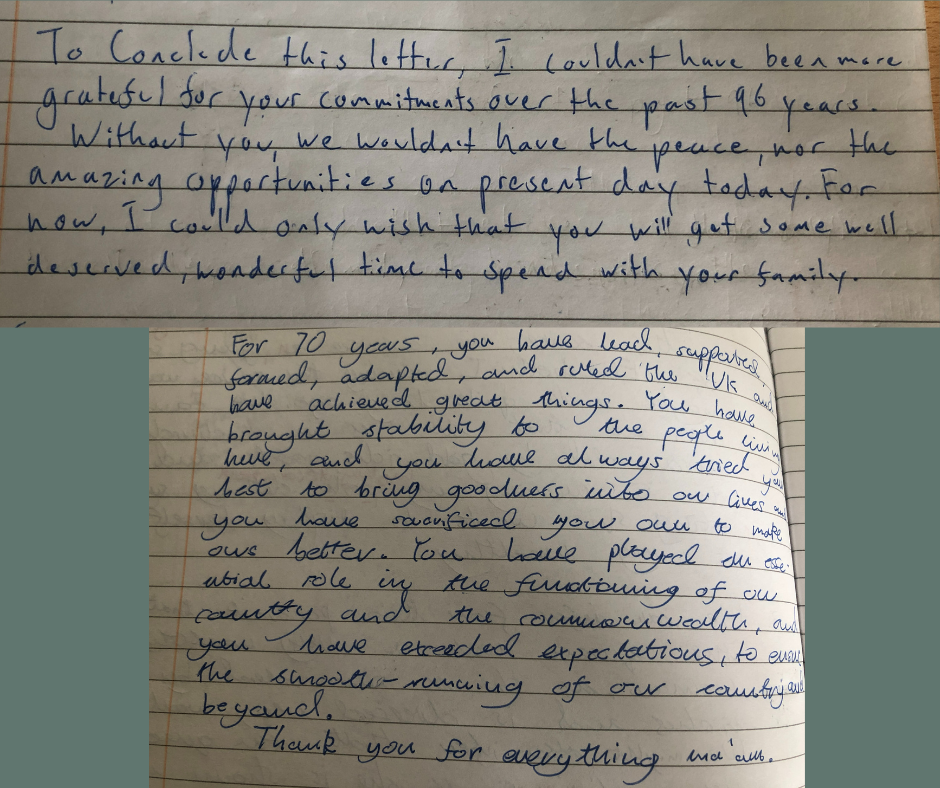 To Conclude this letter, I couldn't have been more
grateful for your commitments over the past 96 years.
Without you, we wouldn't have the peace, nor the
amazing opportunities on present day today. For
now, I could only wish that you will get some well
deserved, wonderful time to spend with your family.
For 70 years, you have lead, supported,
formed, adapted, and ruled the UK and
have achieved great things. You have
brought stability to the people living
here, and you have always tried your
best to bring goodness into our lives and
you have sacrificed your own to make
ours better. You have played an esse-
ntial role in the functioning of our
country and the commonwealth, and
you have exceeded expectations, to ensure
the smooth-running of our country and
beyond.
Thank you for everything ma'am.